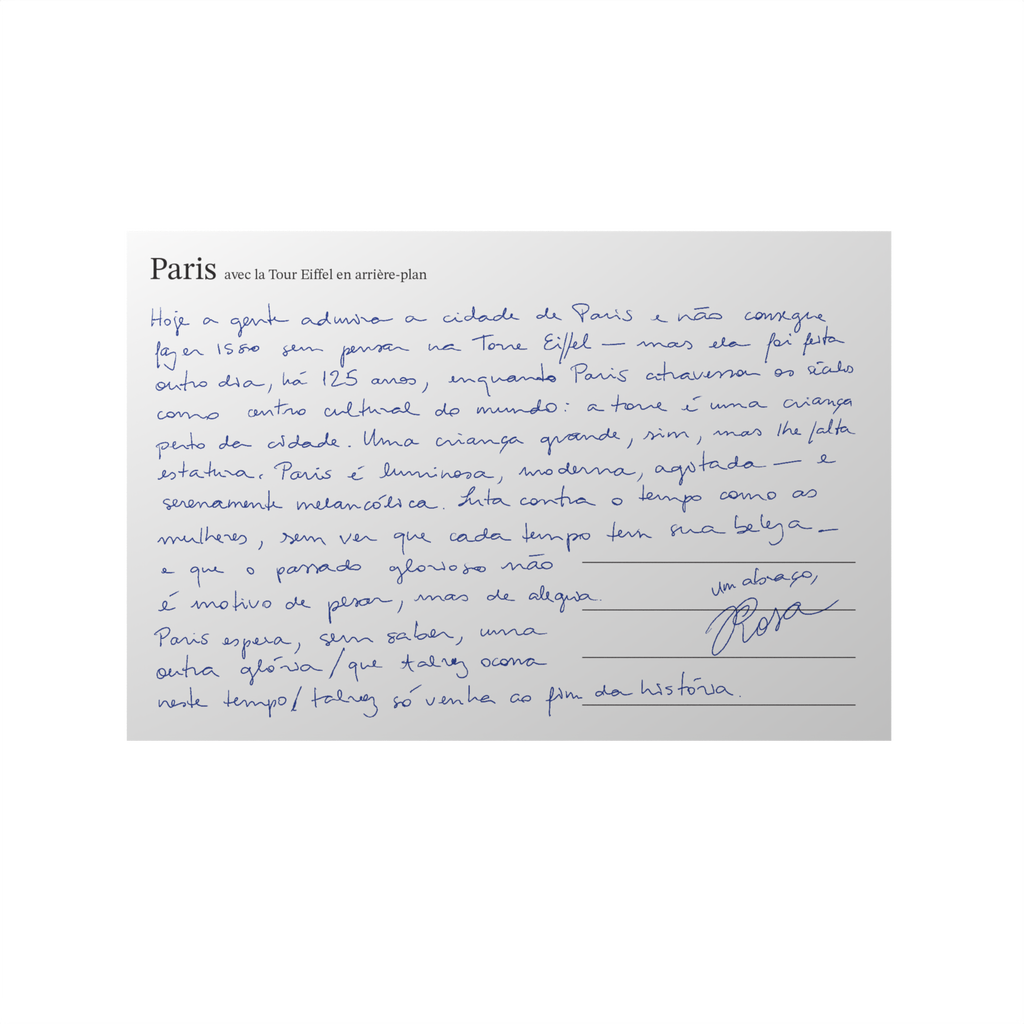 Paris avec la Tour Eiffel en arrière-plan
Hoje a gente admira a cidade de Paris e não consegue
fazer isso sem pensar na Torre Eiffel — mas ela foi feita
outro dia, há 125 anos, enquanto Paris atravessou os séculos
como centro cultural do mundo: a torre é uma criança
perto da cidade. Uma criança grande, sim, mas lhe falta
estatura. Paris é luminosa, moderna, agitada — e
serenamente melancólica. Luta contra o tempo como as
mulheres, sem ver que cada tempo tem sua beleza —
e que o passado glorioso não
é motivo de pesar, mas de alegria.
Paris espera, sem saber, uma
outra glória / que talvez ocorra
neste tempo / talvez só venha ao fim da história.
um abraço,
Rosa